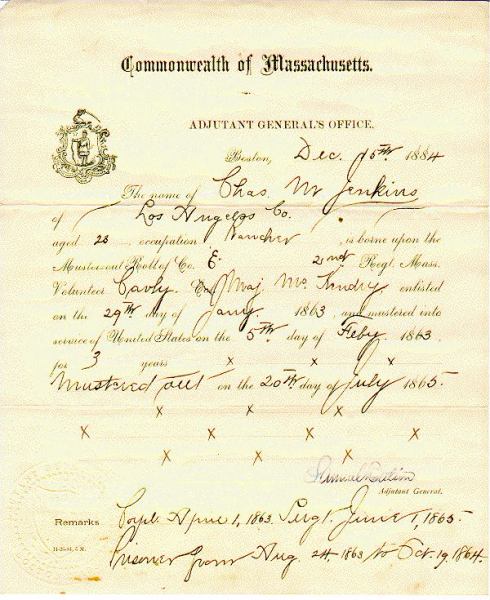 Commonwealth of Massachusetts.
ADJUTANT GENERAL'S OFFICE,
Boston, Dec. 15th. 1884
The name of Chas. M Jenkins
of Los Angelos Co.
aged 23 occupation Rancher, is borne upon the
Muster-out Roll of Co. E. 2nd Regt. Mass.
Volunteer Cavly. Maj. Mc Kendry enlisted
on the 29th day of Jany. 1863, and mustered into
service of United States on the 5th day of Feby. 1863.
for 3 years x x x x
Mustered out on the 20th day of July 1865.
x x x
x x x x x
x x x
Adjutant General.
Remarks Corpl. April 1, 1863. Sergt. June 1, 1865.
Prisoner from Aug. 24. 1863 to Oct. 19. 1864.